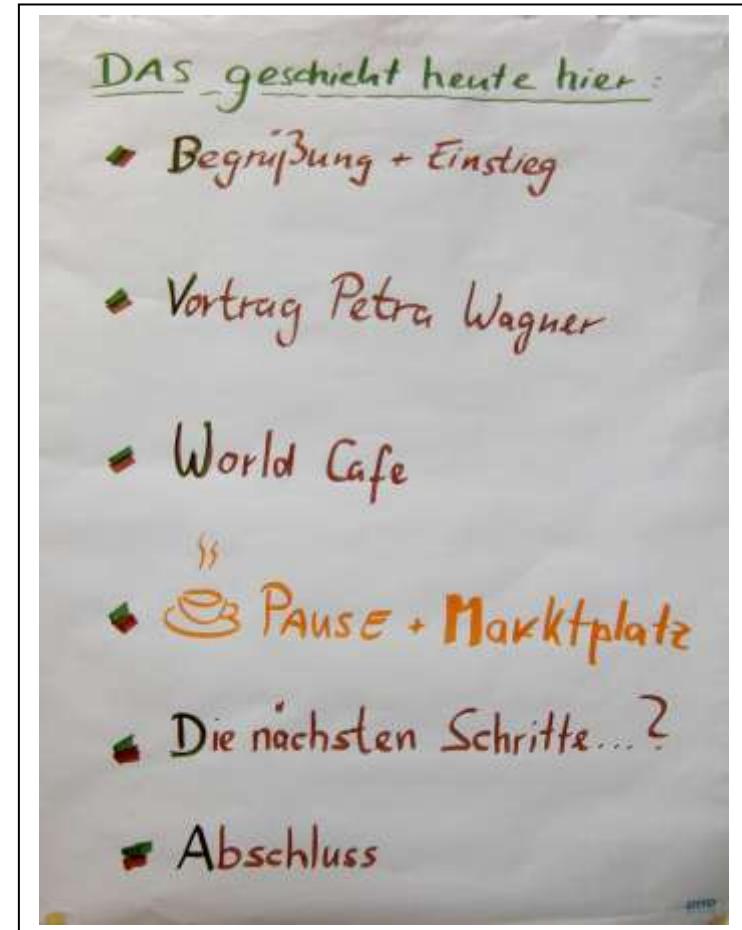 DAS geschieht heute hier:
Begrüßung + Einstieg
Vortrag Petra Wagner
World Cafe
PAUSE + Marktplatz
Die nächsten Schritte...?
Abschluss